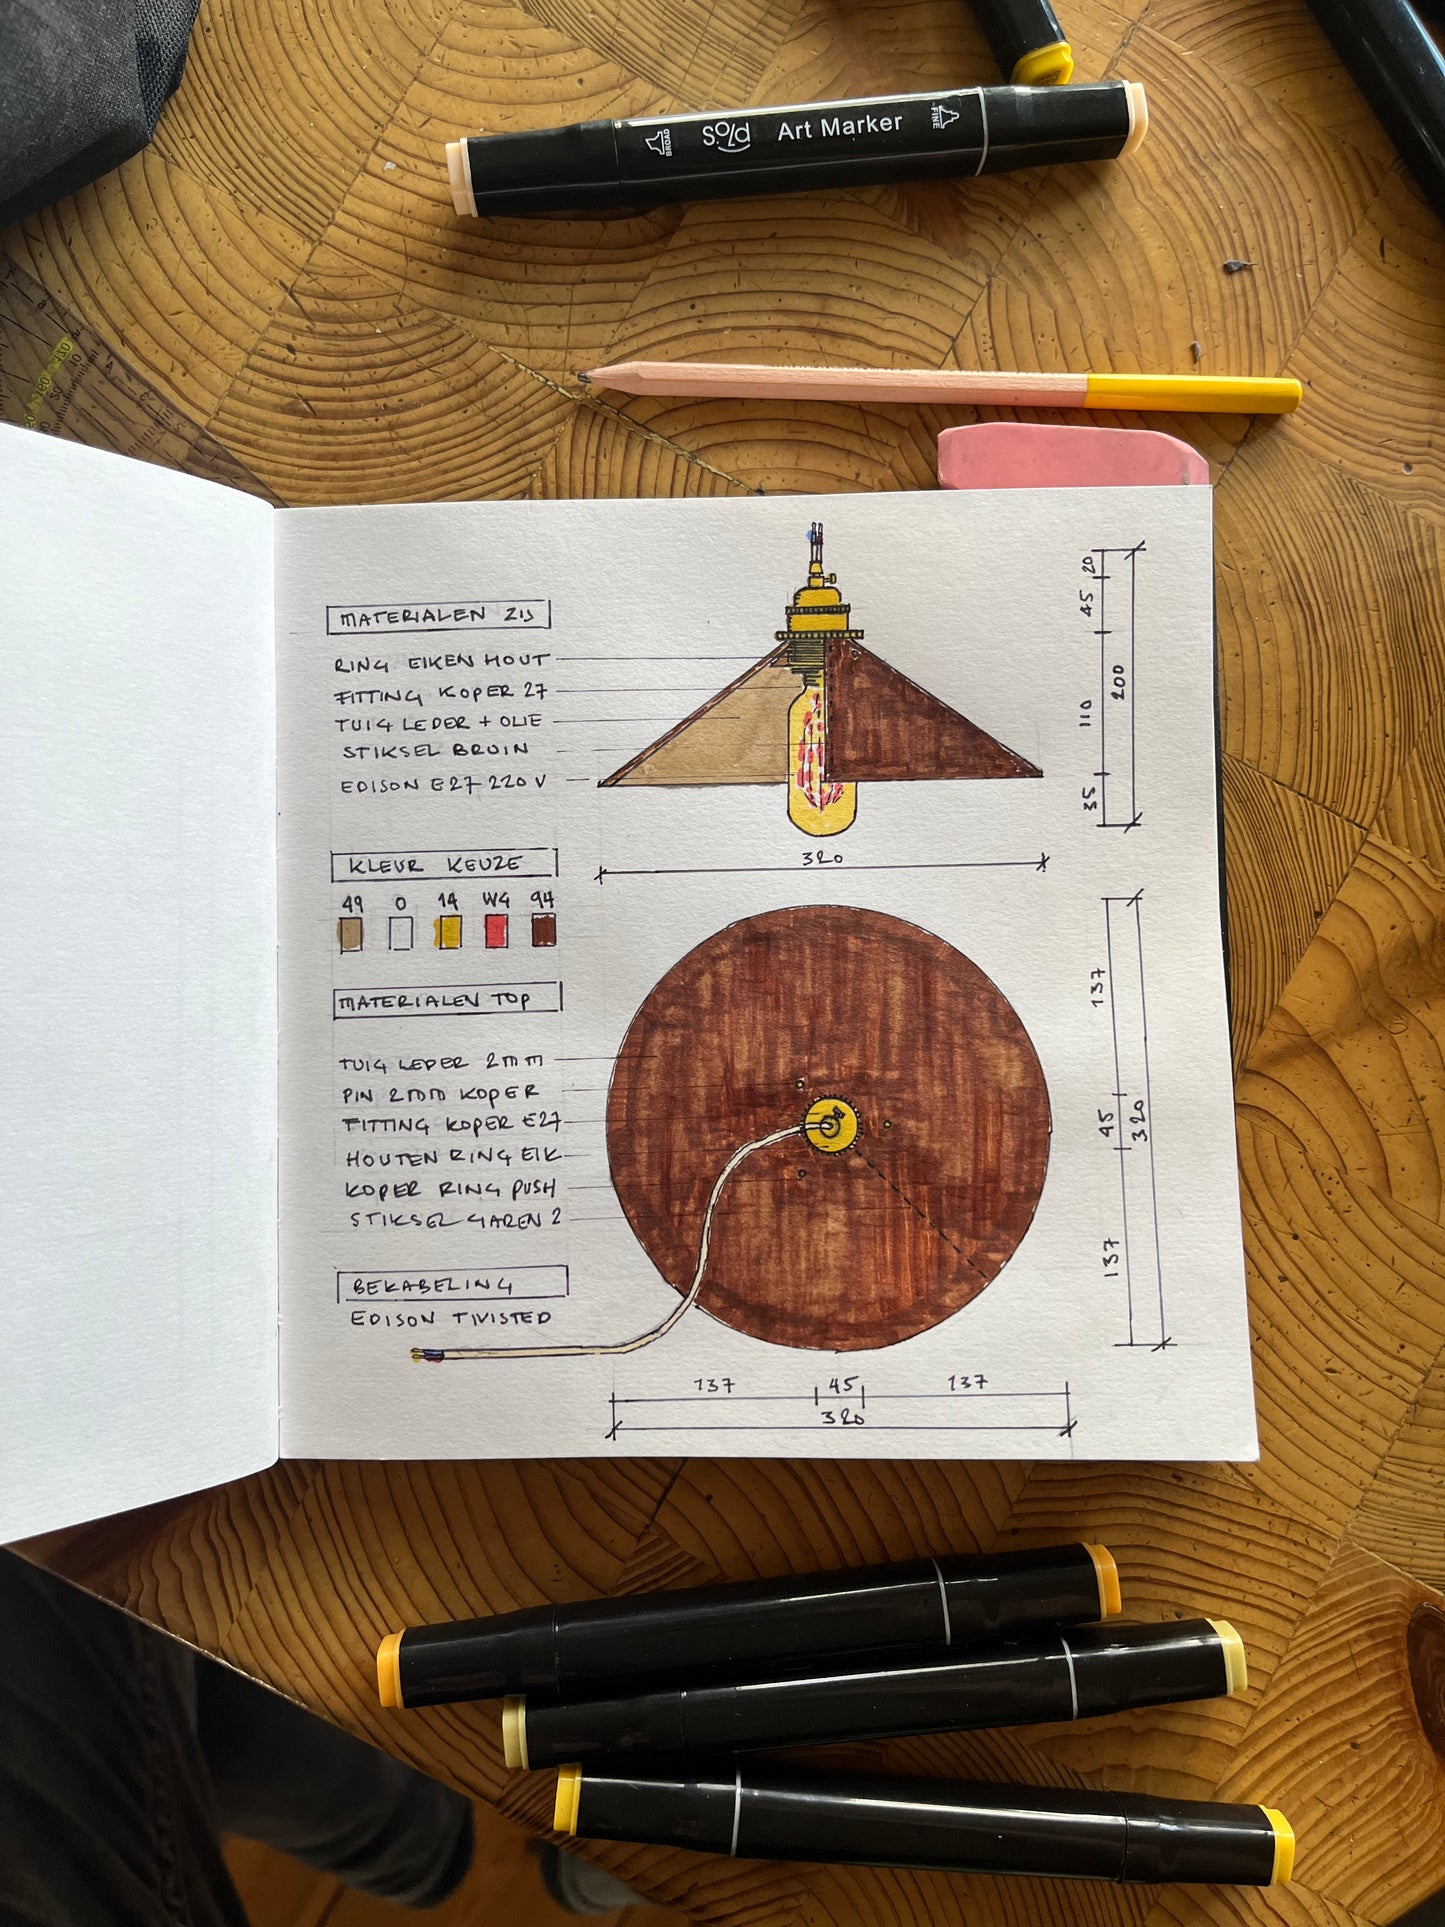 BROAD
Sold
Art Marker
FINE
MATERIALEN ZIJ
RING EIKEN HOUT
FITTING KOPER 27
TUIG LEDER + OLIE
STIKSEL BRUIN
EDISON E27 220 V
20
45
110
200
35
320
KLEUR KEUZE
49 0 14 WG 94
MATERIALEN TOP
TUIG LEDER 2MM
PIN 2MM KOPER
FITTING KOPER E27
HOUTEN RING EIK
KOPER RING PUSH
STIKSEL GAREN 2
137
45
320
137
BEKABELING
EDISON TWISTED
137 45 137
320